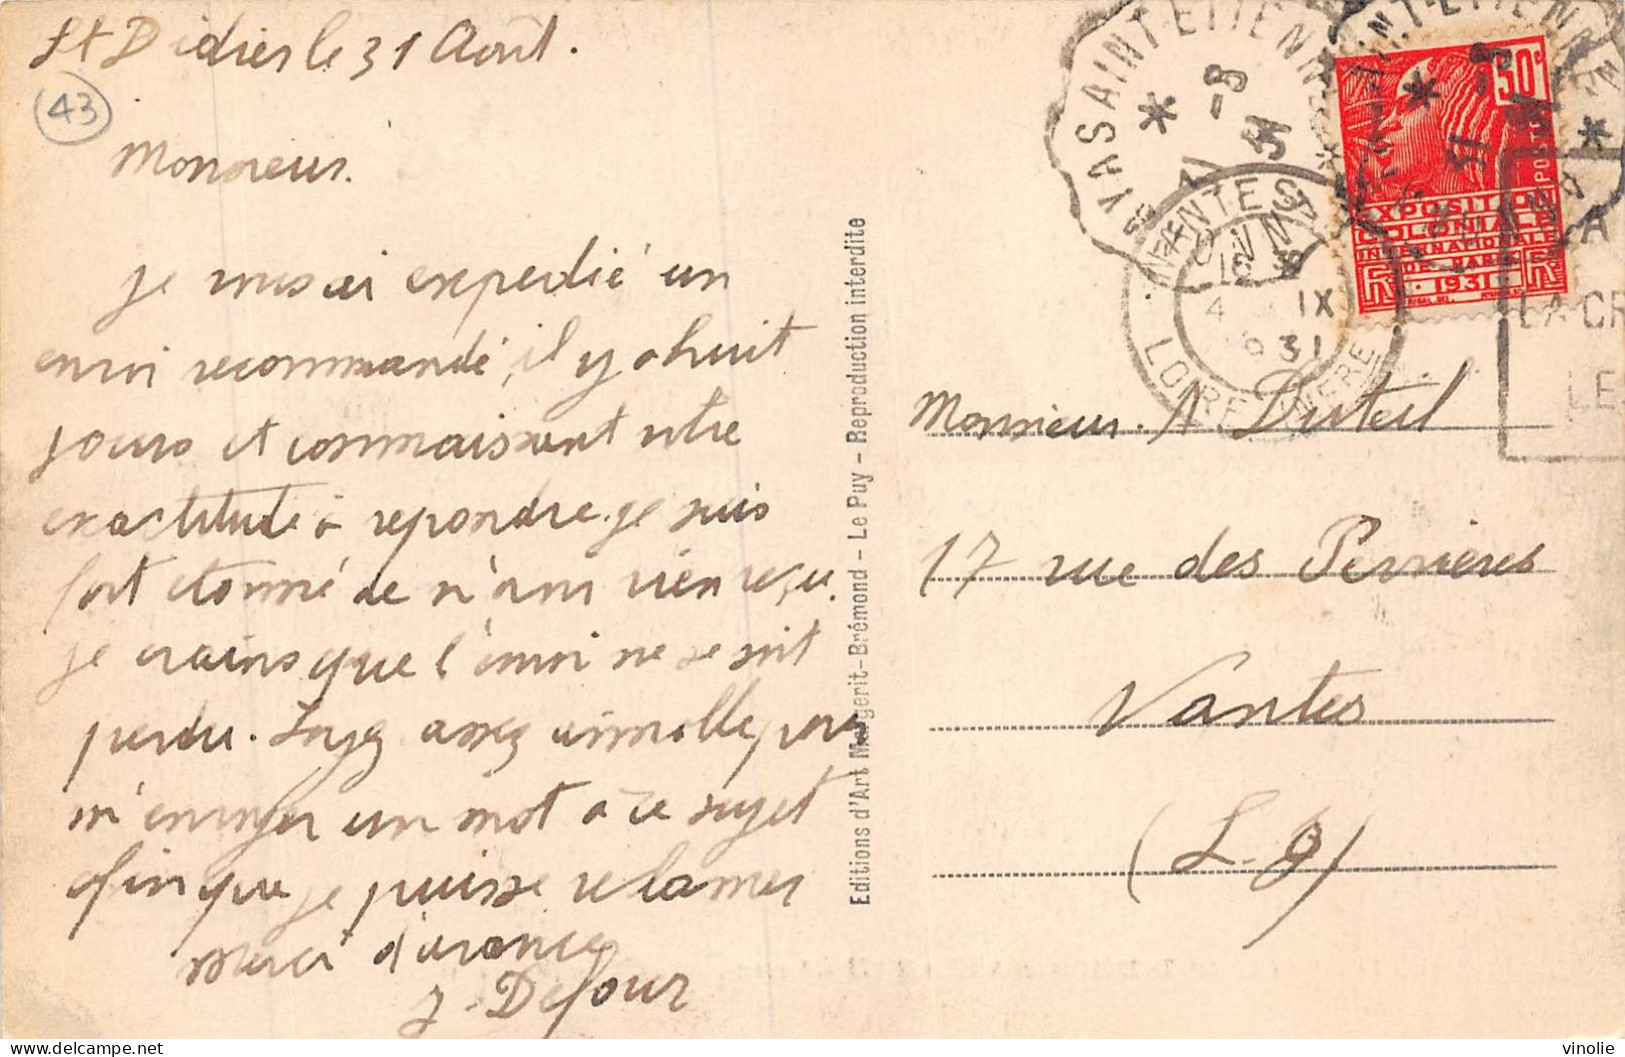 St Didier le 31 Août.
43
Monsieur.
je vous ai expedié un
envoi recommandé, il y a huit
jours et connaissant votre
exactitude à repondre je suis
fort etonné de n'avoir rien reçu.
je crains que l'envoi ne se soit
perdu. Soyez assez aimable pour
m'envoyer un mot à ce sujet
afin que je puisse reclamer
merci d'avance
J. Defour
Editions d'Art Margerit-Brémond - Le Puy - Reproduction interdite
SAINT-ETIENNE
31 -8
NANTES
LOIRE INFRE
4 IX
31
50c
POSTES
EXPOSITION
COLONIALE
INTERNATIONALE
DE PARIS
RF · 1931 · RF
LA CR
LE
Monsieur. A Duteil
17 rue des Perrières
Nantes
(L-I)
vinolie